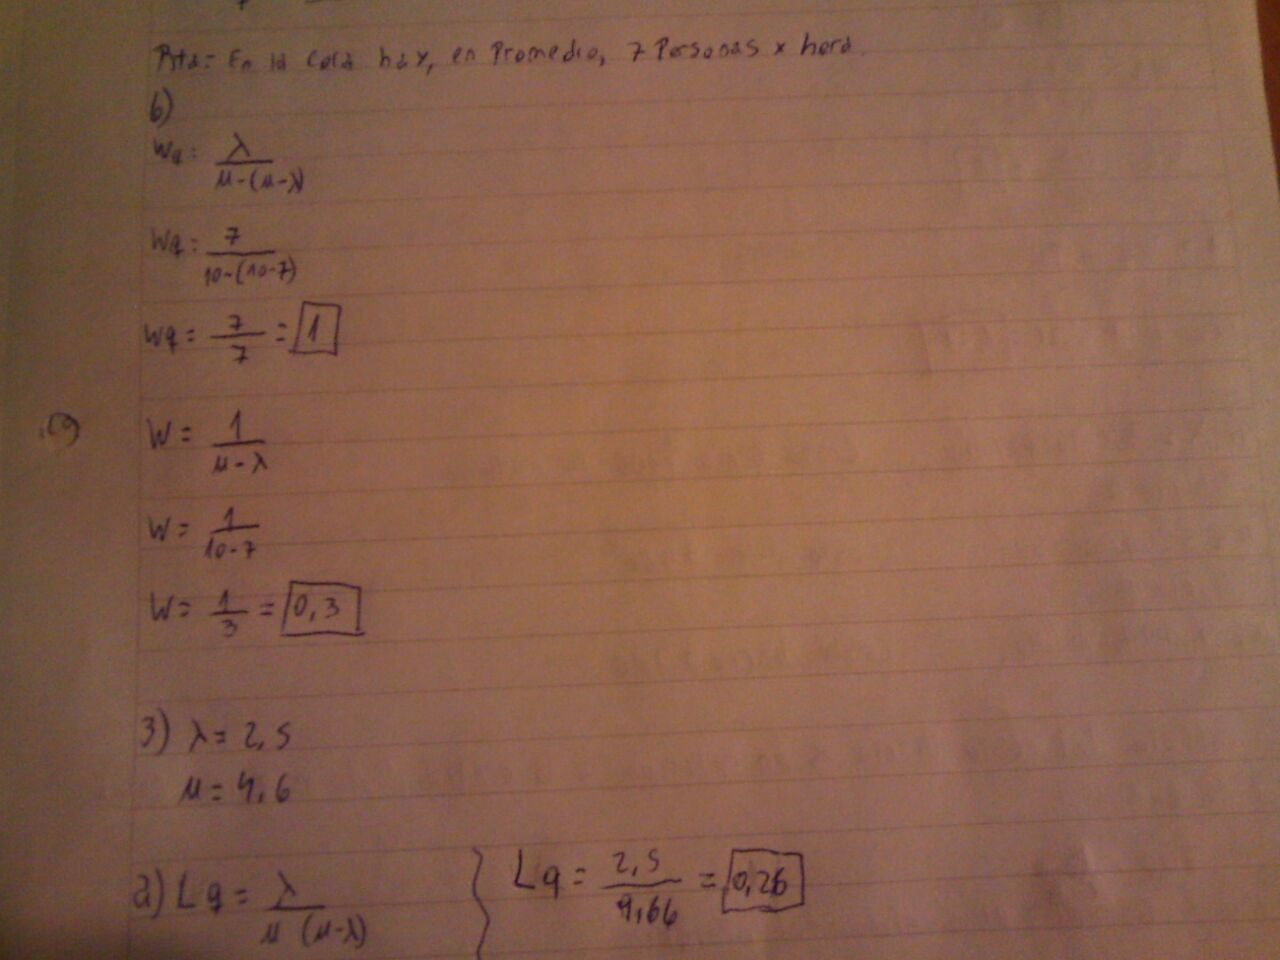 Rta= En la cola hay, en Promedio, 7 Personas x hora.
b)
Wq= λ / μ-(μ-λ)
Wq= 7 / 10-(10-7)
Wq= 7 / 7 = 1
W= 1 / μ-λ
W= 1 / 10-7
W= 1 / 3 = 0,3
3) λ= 2,5
μ= 4,6
a) Lq= λ / μ (μ-λ) } Lq= 2,5 / 9,66 = 0,26